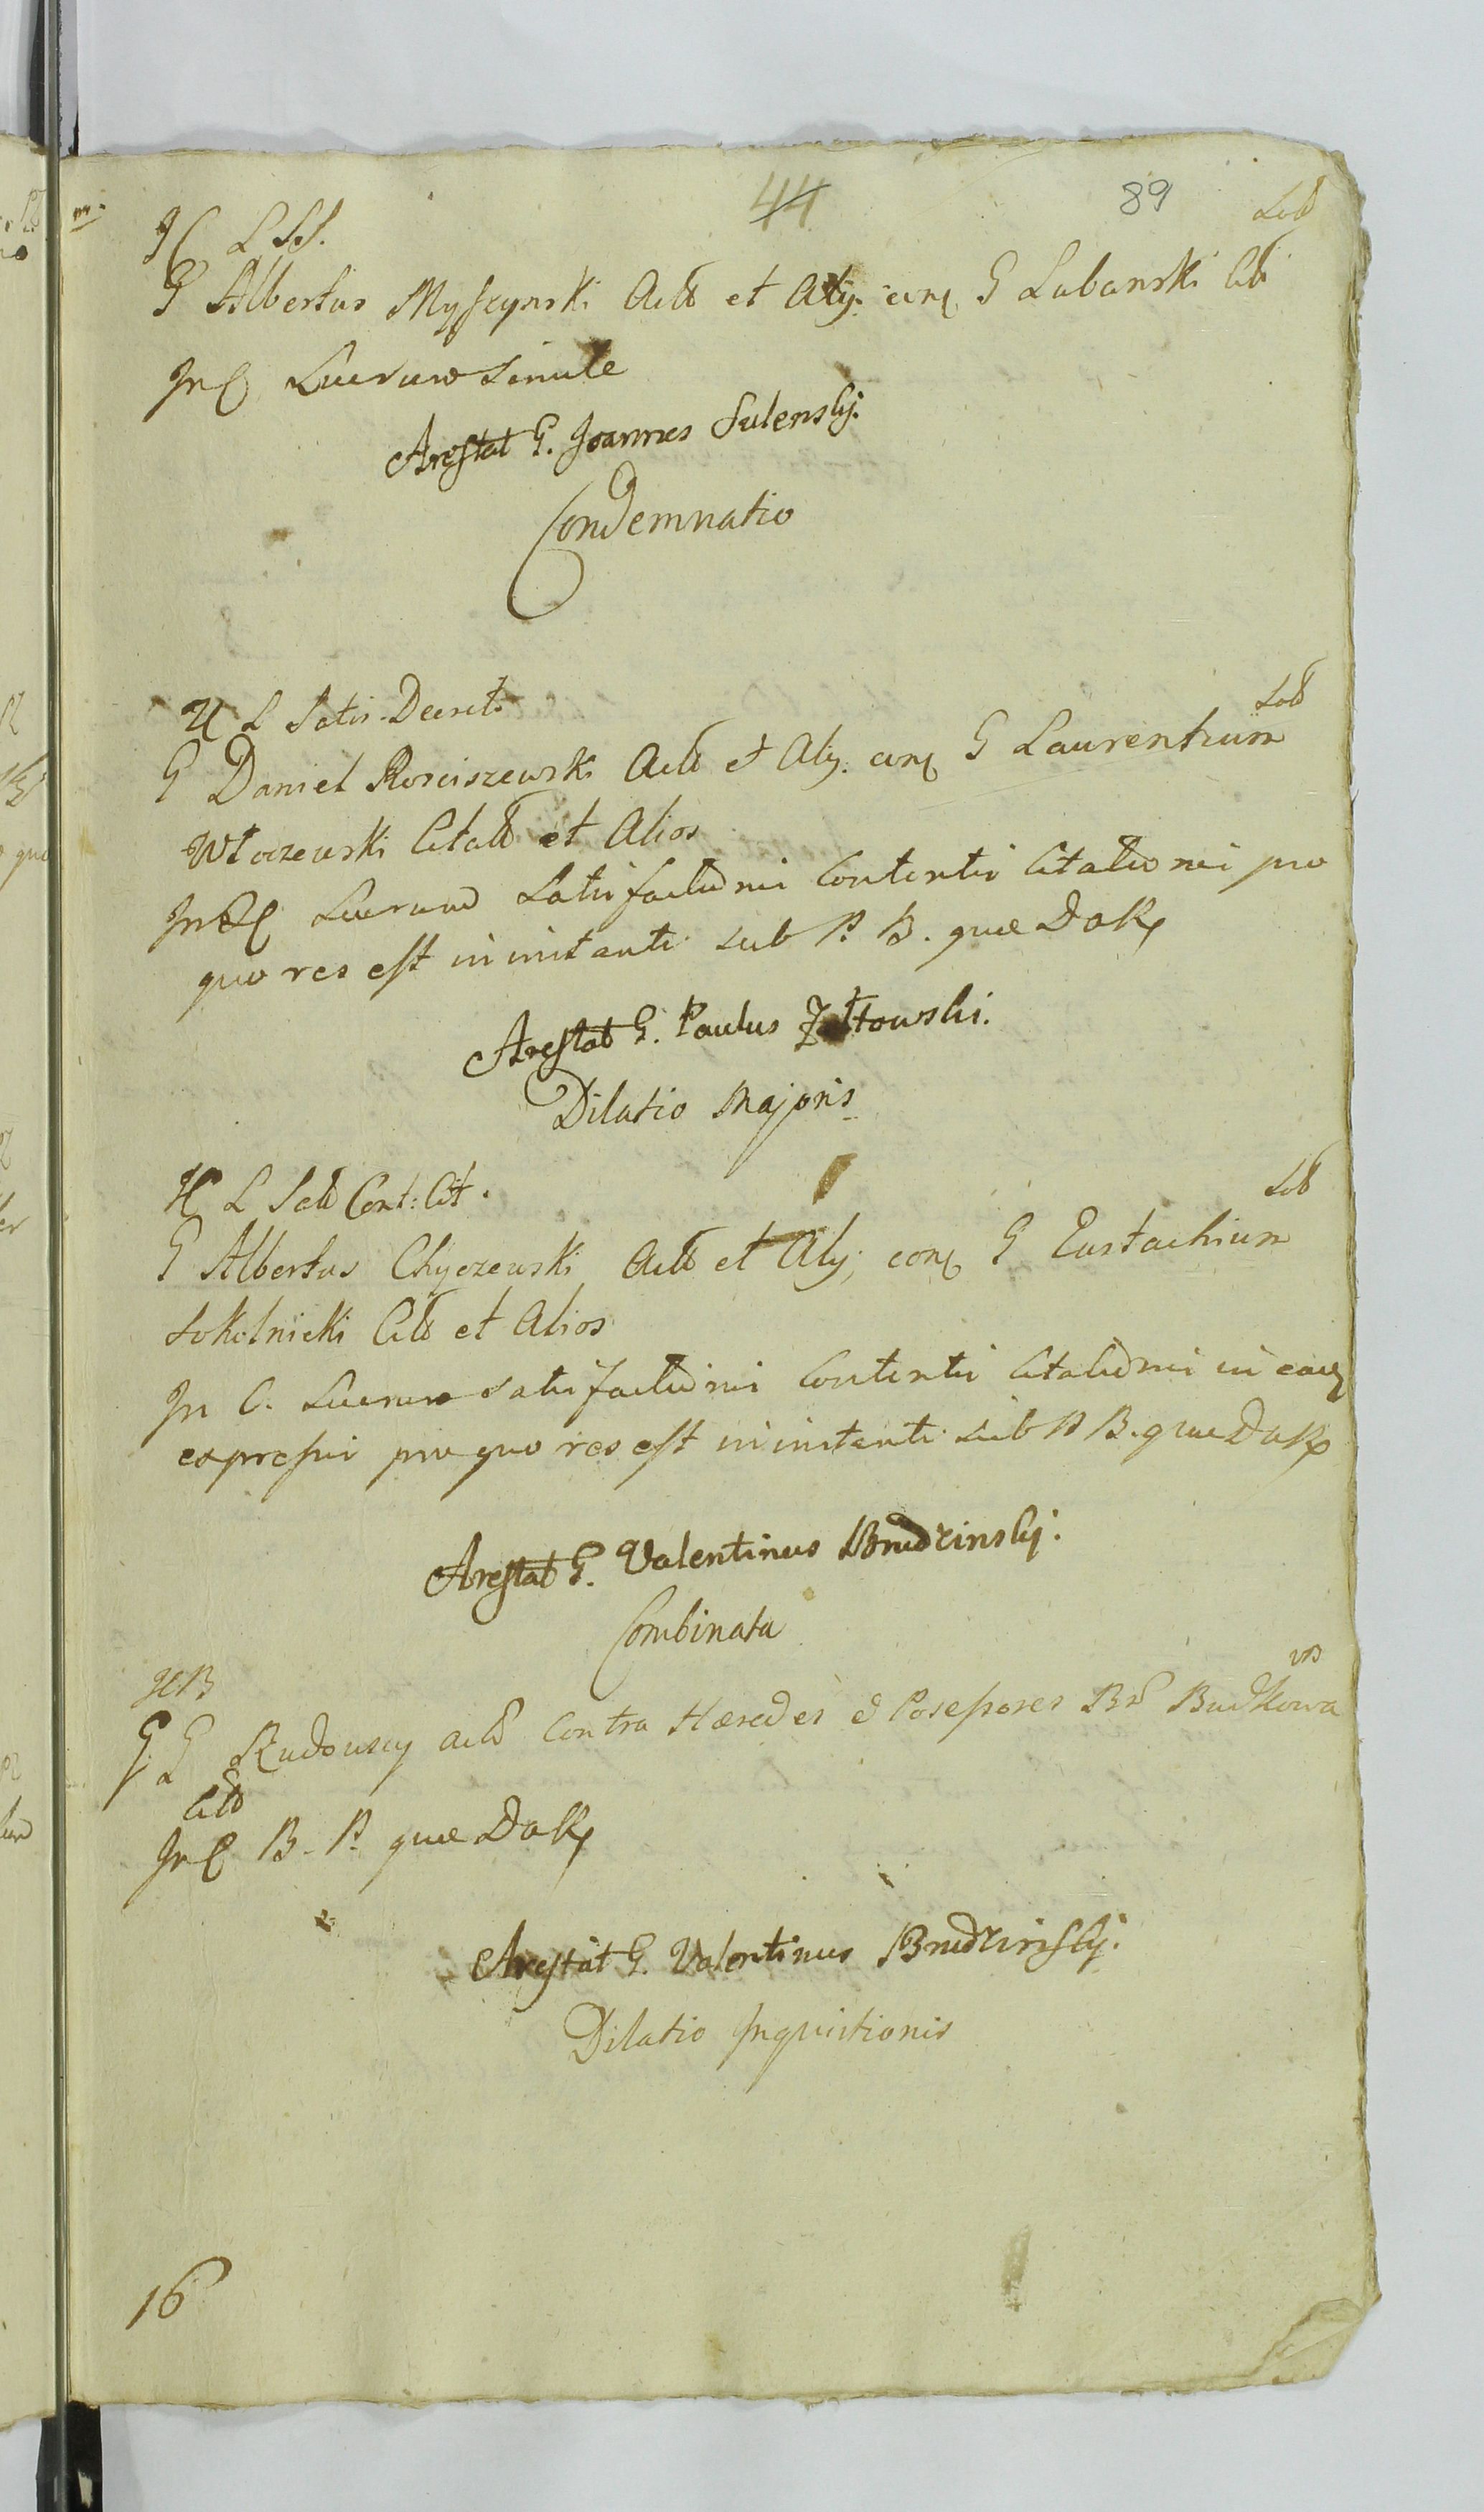 44 89
G Albertus Myszynski Actt et Alij. conq G Lubanski Citt
In C Lucrum simile
Arestat G. Joannes Sulenskj.
Condemnatio
H L Satis Decret:
G Daniel Rosciszewski Actt et Alij. conq G Laurentium
Włoczewski Citatt et Alios
Lucrum Satisfactionis Contentis Citationis pro
quo res est in instanti sub P. B. quae Dat
Arestat G. Paulus Żółtowski.
Dilatio Majoris
H L Sat Cont: Cit.
G Albertus Chyczewski Actt et Alij; conq G Eustachium
Sokolnicki Citt et Alios
In C. Lucrum satisfactionis Contentis Citationis in eaq
expressis pro quo res est in instanti sub P B. quae Dat
Arestat G. Valentinus Brudzinskj.
Combinata
HB
G G Rudowscy actt Contra Haeredes et Possessores Br Budkowa
Citt
In C B. P. quae Dat
Arestat G. Valentinus Brudzinskj.
Dilatio Inquisitionis
16